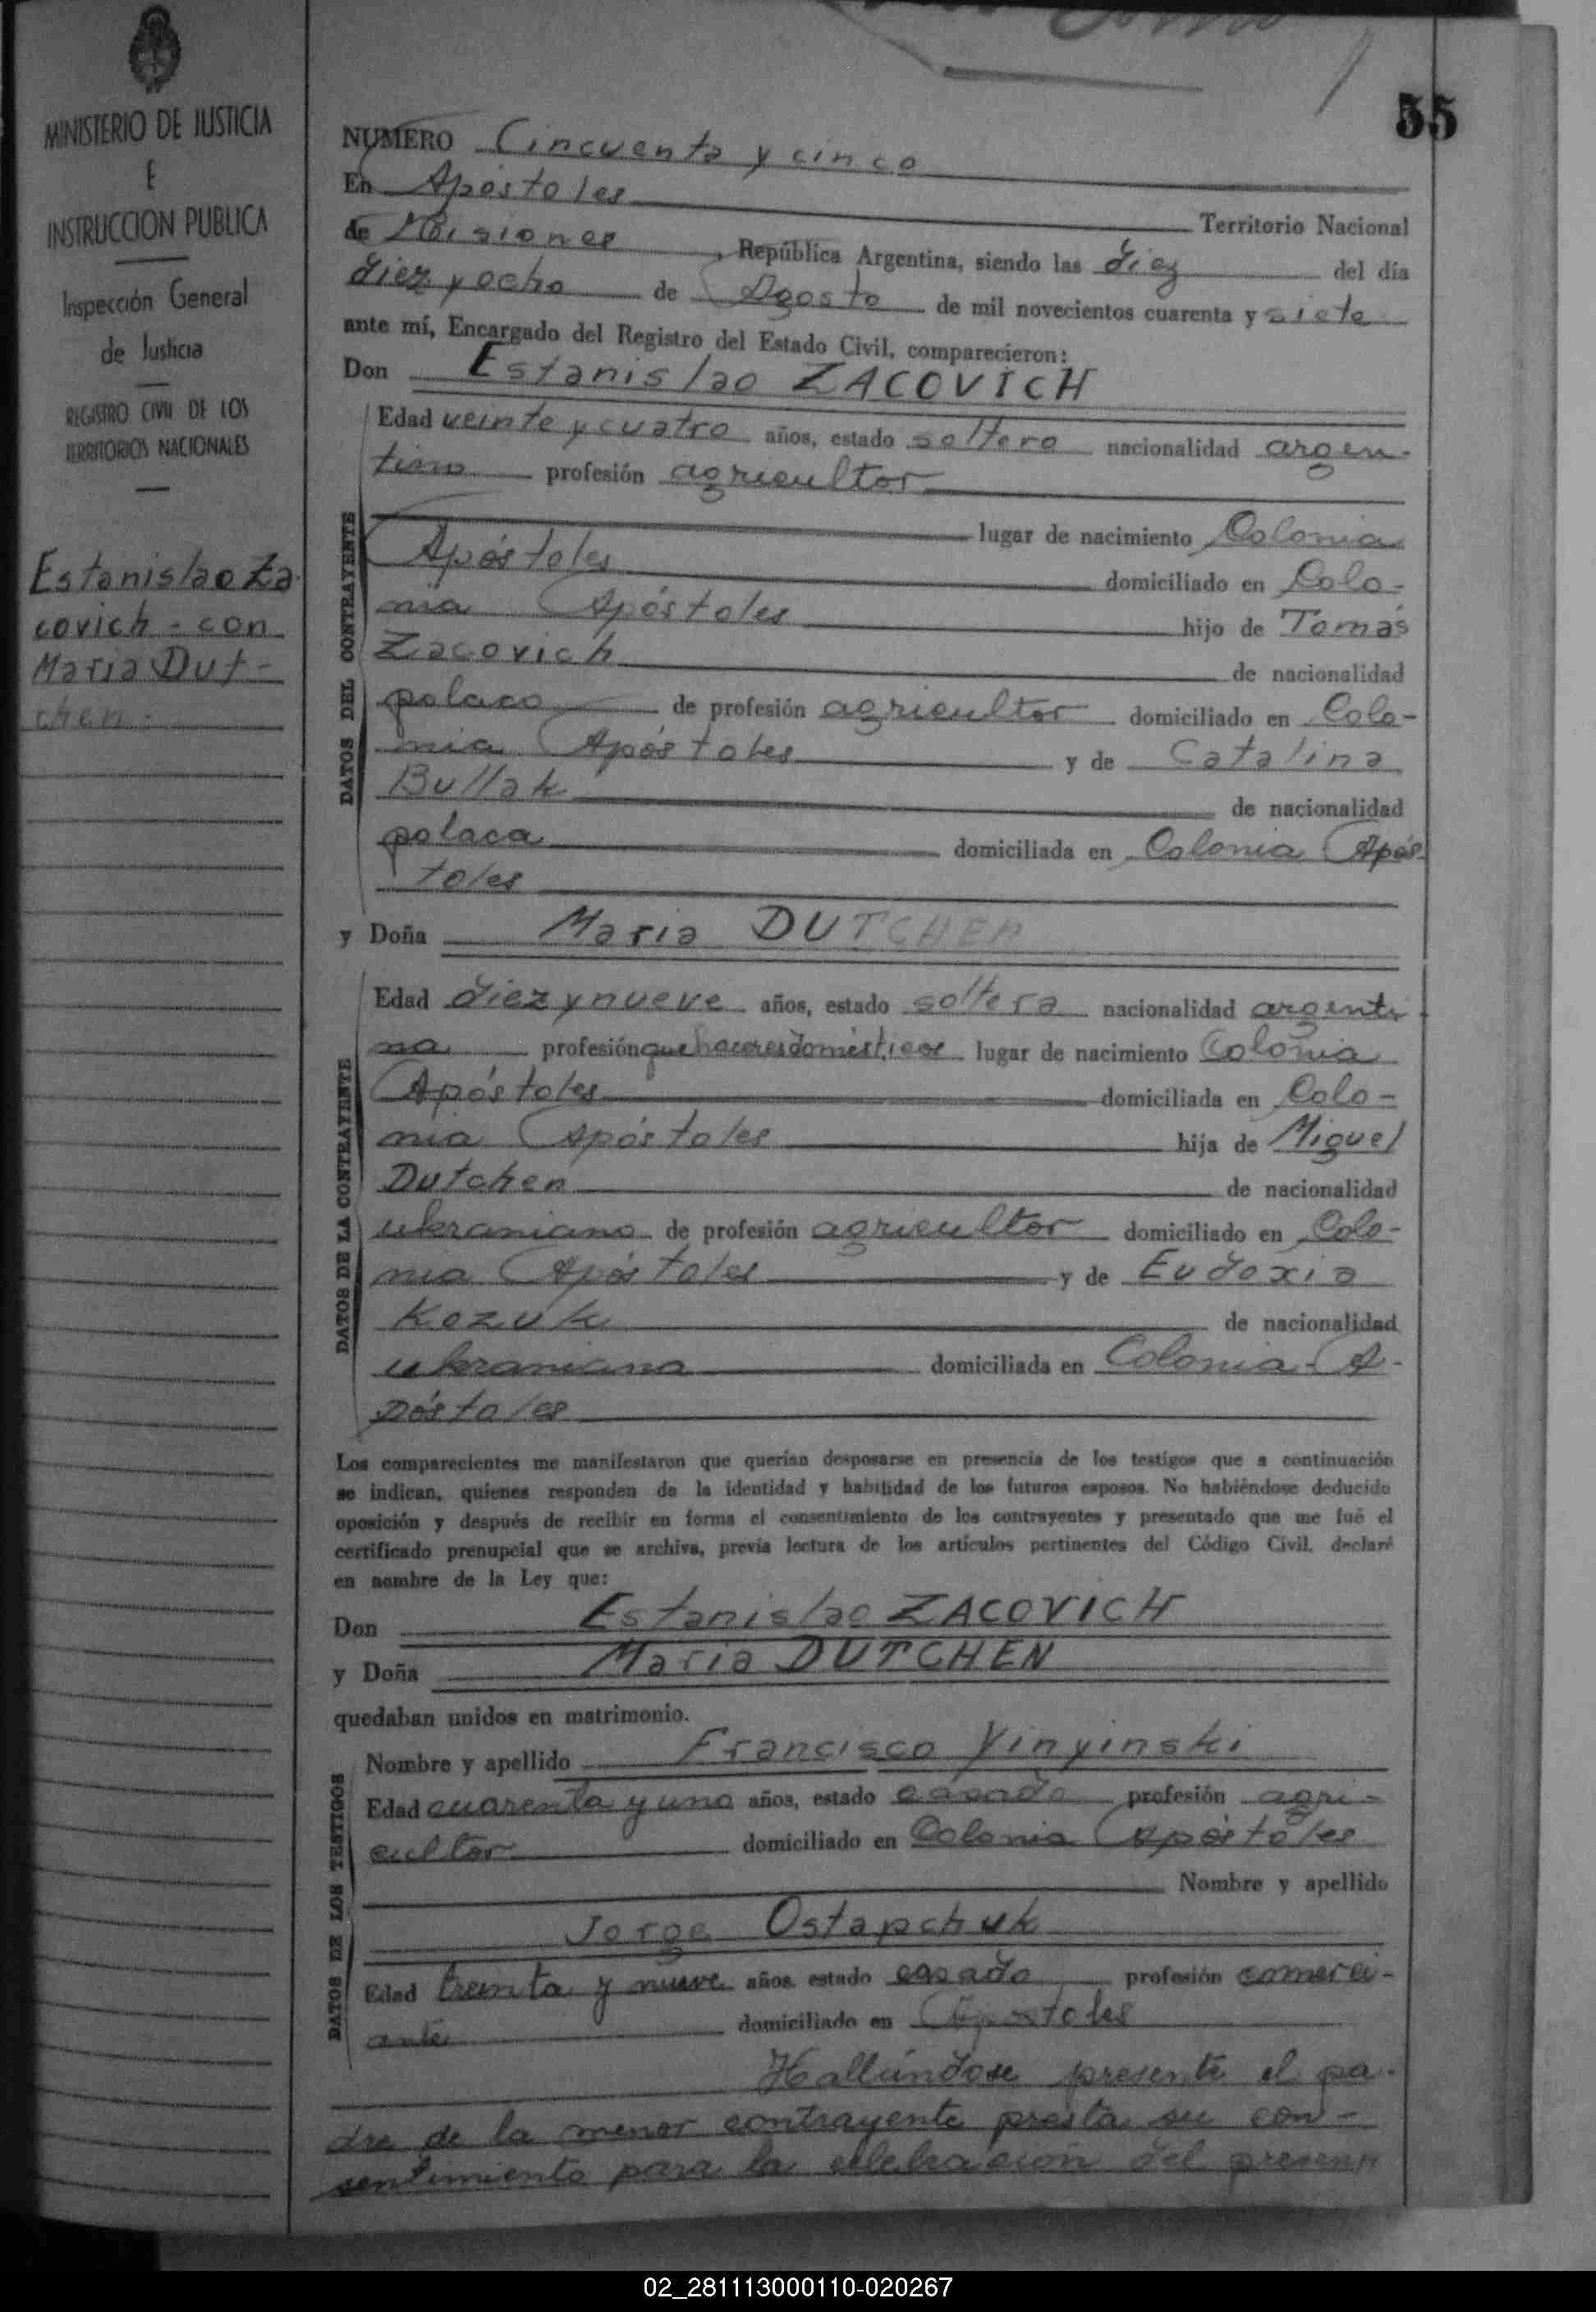 55
MINISTERIO DE JUSTICIA
E
INSTRUCCION PUBLICA
Inspección General
de Justicia
REGISTRO CIVIL DE LOS
TERRITORIOS NACIONALES
Estanislao Za-
covich - con
Maria Dut-
chen -
NUMERO Cincuenta y cinco
En Apóstoles Territorio Nacional
de Misiones, República Argentina, siendo las diez del día
diez y ocho de Agosto de mil novecientos cuarenta y siete
ante mí, Encargado del Registro del Estado Civil, comparecieron:
Don Estanislao ZACOVICH
DATOS DEL CONTRAYENTE
Edad veinte y cuatro años, estado soltero nacionalidad argen-
tino profesión agricultor
lugar de nacimiento Colonia
Apóstoles domiciliado en Colo-
nia Apóstoles hijo de Tomás
Zacovich de nacionalidad
polaco de profesión agricultor domiciliado en Colo-
nia Apóstoles y de Catalina
Bullak de nacionalidad
polaca domiciliada en Colonia Após-
toles
y Doña Maria DUTCHEN
DATOS DE LA CONTRAYENTE
Edad diez y nueve años, estado soltera nacionalidad argenti-
na profesión quehaceres domésticos lugar de nacimiento Colonia
Apóstoles domiciliada en Colo-
nia Apóstoles hija de Miguel
Dutchen de nacionalidad
ukraniano de profesión agricultor domiciliado en Colo-
nia Apóstoles y de Eudoxia
Kozuk de nacionalidad
ukraniana domiciliada en Colonia A-
póstoles
Los comparecientes me manifestaron que querían desposarse en presencia de los testigos que a continuación
se indican, quienes responden de la identidad y habilidad de los futuros esposos. No habiéndose deducido
oposición y después de recibir en forma el consentimiento de los contrayentes y presentado que me fué el
certificado prenupcial que se archiva, previa lectura de los artículos pertinentes del Código Civil, declaré
en nombre de la Ley que:
Don Estanislao ZACOVICH
y Doña Maria DUTCHEN
quedaban unidos en matrimonio.
DATOS DE LOS TESTIGOS
Nombre y apellido Francisco Yinyinski
Edad cuarenta y uno años, estado casado profesión agri-
cultor domiciliado en Colonia Apóstoles
Nombre y apellido
Jorge Ostapchuk
Edad treinta y nueve años estado casado profesión comerci-
ante domiciliado en Apostoles
Hallándose presente el pa-
dre de la menor contrayente presta su con-
sentimiento para la celebración del presen
02_281113000110-020267